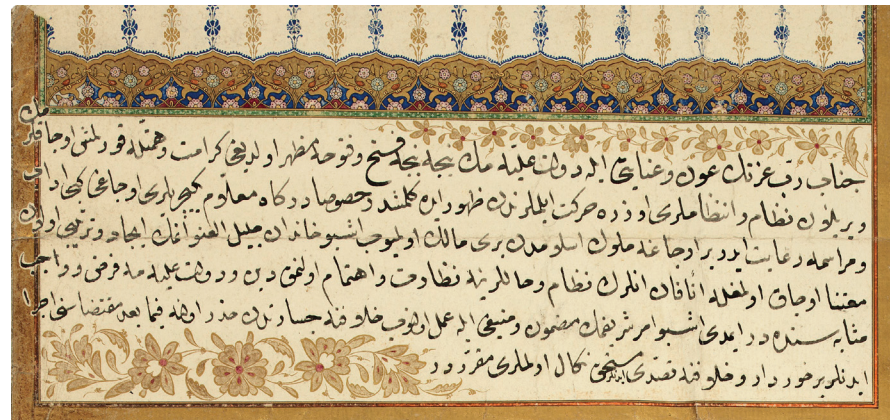 جناب رب عزتك عون وعنايتى ايله دولت عليه مك نيجه نيجه فتح وفتوحه مظهر اولديغى كرامت وهمتله قورلمش اوجاقلر
ويريلان نظام وانتظاملرى اوزره حركت ايلملرندن ظهور ايده كلمشدر خصوصا دركاه معلوم
ومراسمه رعايت ايدير اوجاغه ملوك اسلامدن برى مالك اوليوب اشبو خاندان جليل العنوانمك ايجاد وترتيبى اولان
معتنا اوجاق اولمغله آنلرك نظام وحاللرينه نظارت واهتمام اولنمق دين ودولت عليه مه فرض وواجب
مثابه سنده در ايمدى اشبو امر شريفمك مضمون ومنيفى ايله عمل اولنوب خلافنه جسارتدن حذر اولنه فيما بعد مقتضاسنى اجرا
ايدنلر برخوردار وخلافنه تصدى ايدنلر مستحق نكال اولملرى مقرردر